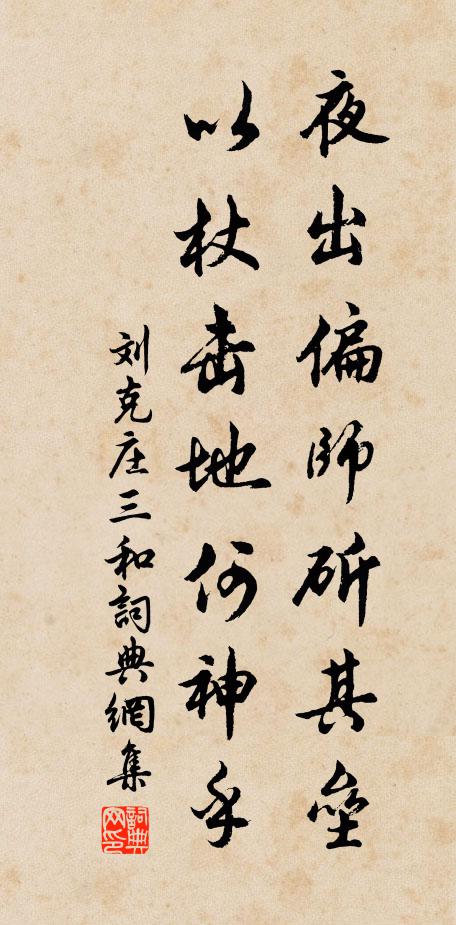 夜出偏師斫其壘
以杖击地何神乎
刘克庄三和詞典網集
詞典網印